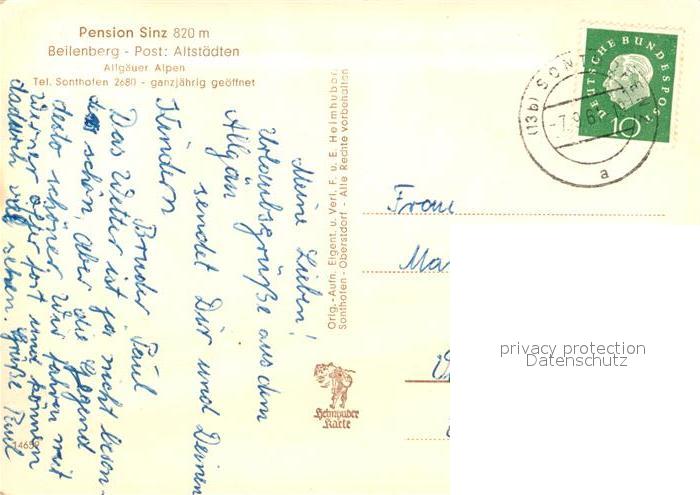 Pension Sinz 820 m
Beilenberg - Post: Altstädten
Allgäuer Alpen
Tel. Sonthofen 2680 - ganzjährig geöffnet
Meine Lieben!
Urlaubsgrüße aus dem
Allgäu
sendet Dir und Deinen
Kindern
Bruder Paul
Das Wetter ist ja nicht beson-
ders schön, aber die Gegend
desto schöner. Wir fahren mit
Werner öfter fort und können
dadurch viel sehen. Grüße Paul
14652
Orig.-Aufn. Eigent. u. Verl. F. u. E. Heimhuber,
Sonthofen - Oberstdorf - Alle Rechte vorbehalten
Heimhuber
Karte
DEUTSCHE BUNDESPOST
10
(13b) SONTHOFEN
-7.9.6
a
Frau
Ma
privacy protection
Datenschutz